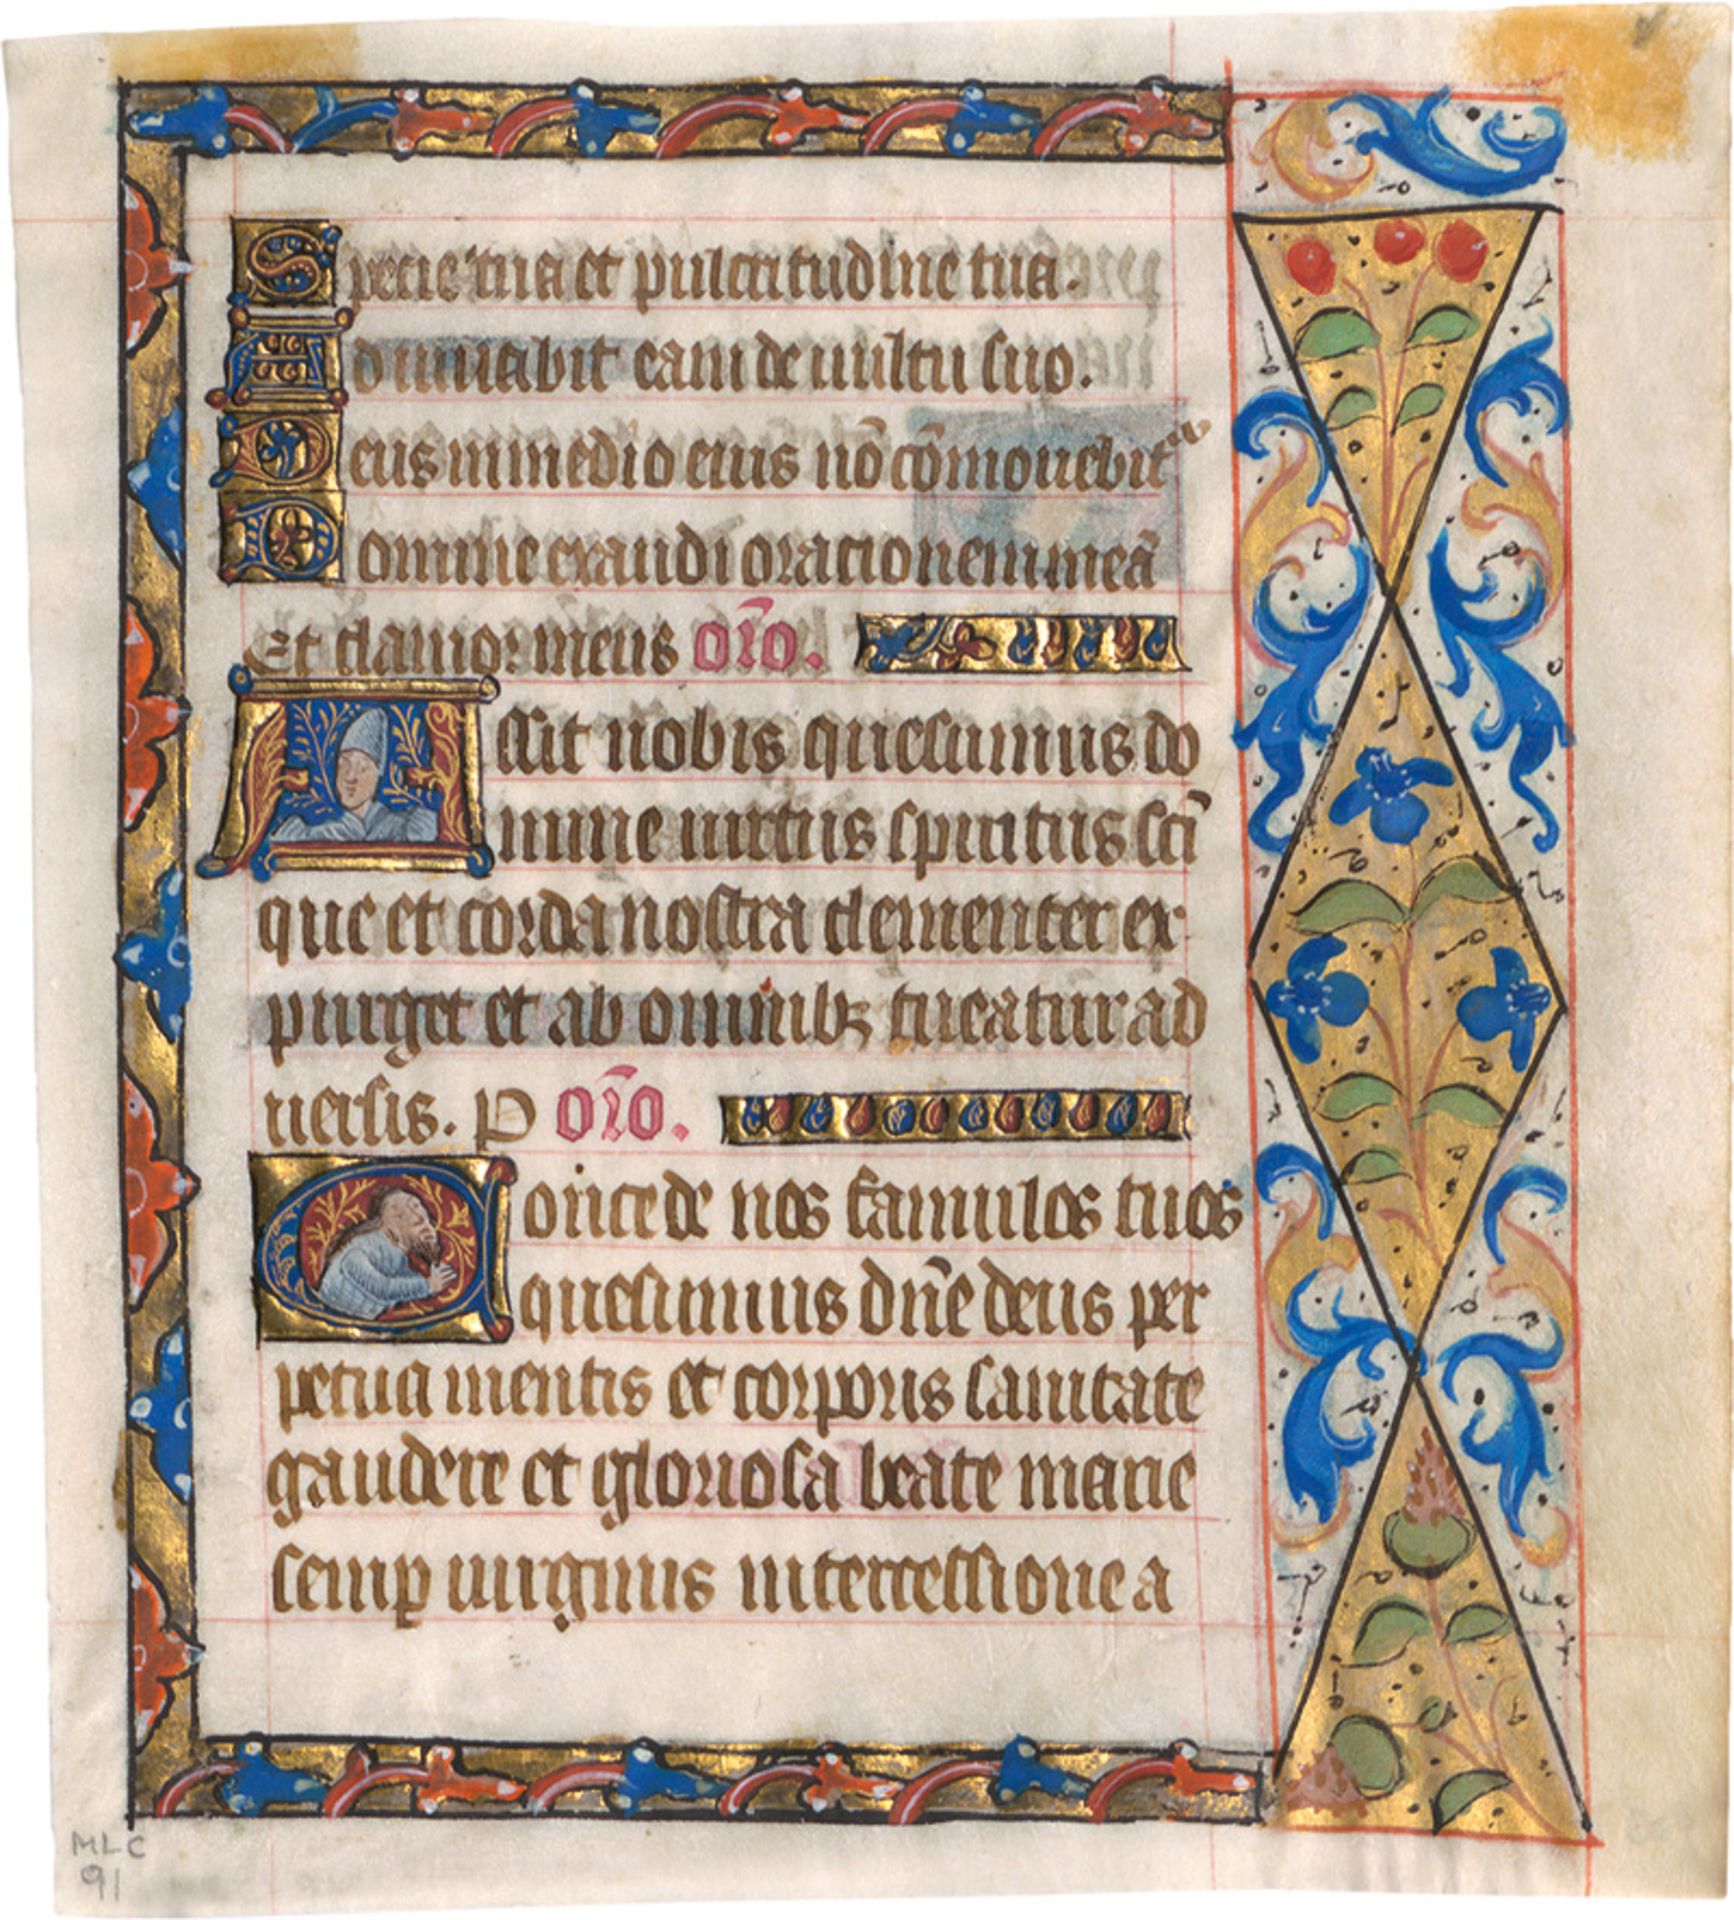 Specie tua et pulcritudine tua.
Adiuuabit eam deus uultu suo.
Deus in medio eius nō cōmouebit᷑
Domine exaudi orationem meā
Et clamor meus oro̅.
Assit nobis quesumus do
mine uirtus spiritus sc̄i
que et corda nostra clementer ex
purget et ab omnibꝫ tueatur ad
uersis. P oro̅.
Concede nos famulos tuos
quesumus dn̄e deus per
petua mentis et corporis sanitate
gaudere et gloriosa beate marie
semꝑ uirginis intercessione a
MLC
91